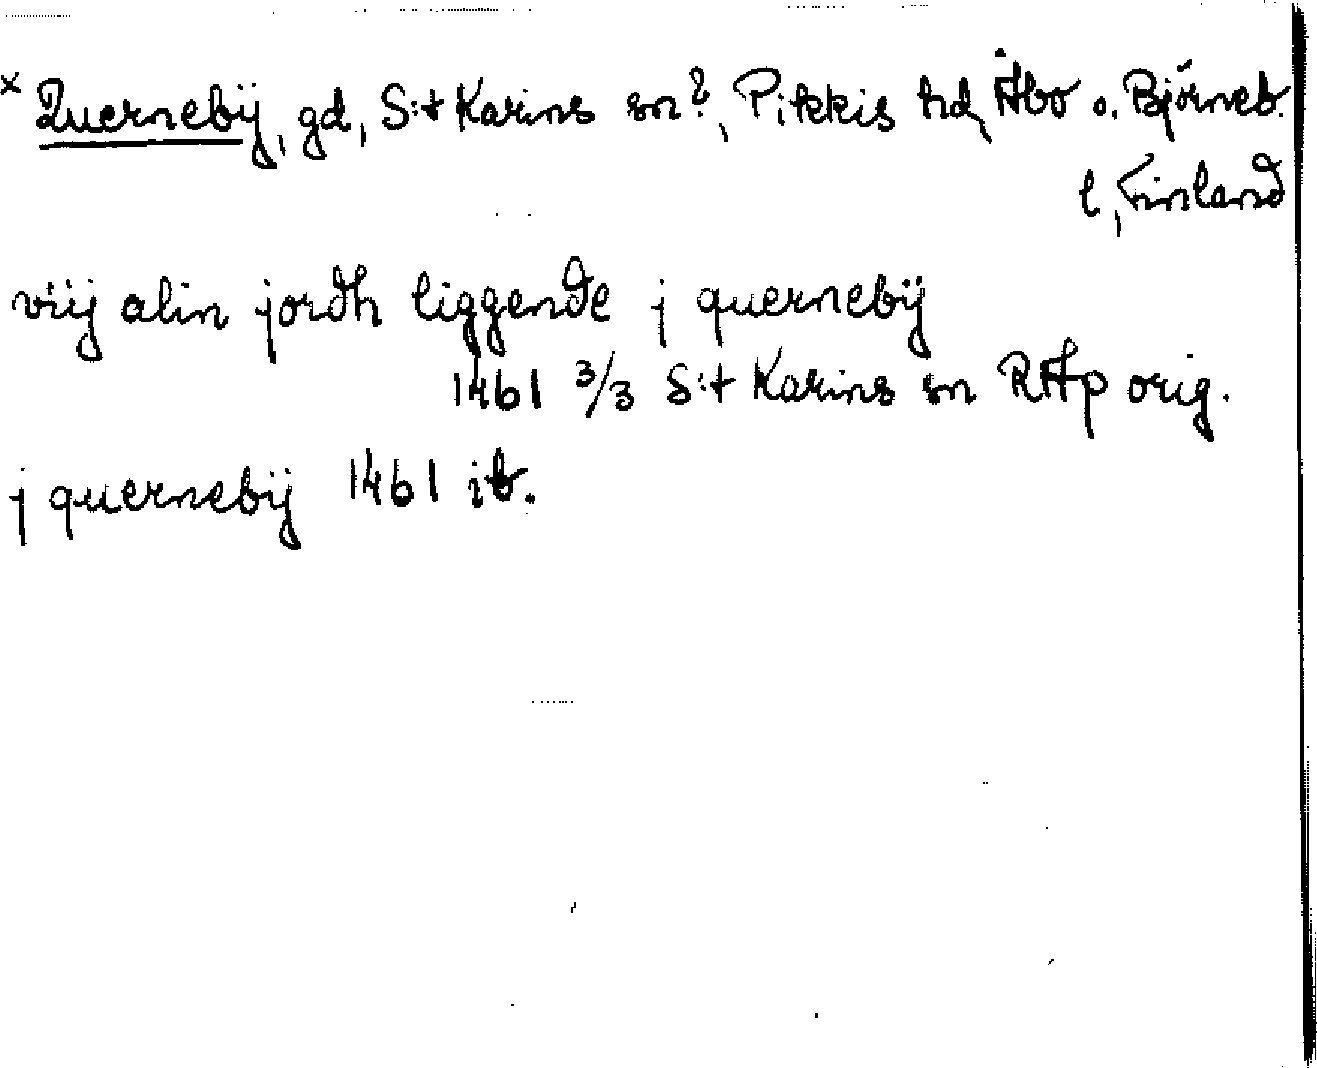 x Quernebÿ, gd, S:t Karins sn?, Pikkis hd, Åbo o. Björneb.
l, Finland
viij alin jordh liggende j quernebÿ
1461 3/3 S:t Karins sn RAp orig.
j quernebÿ 1461 ib.